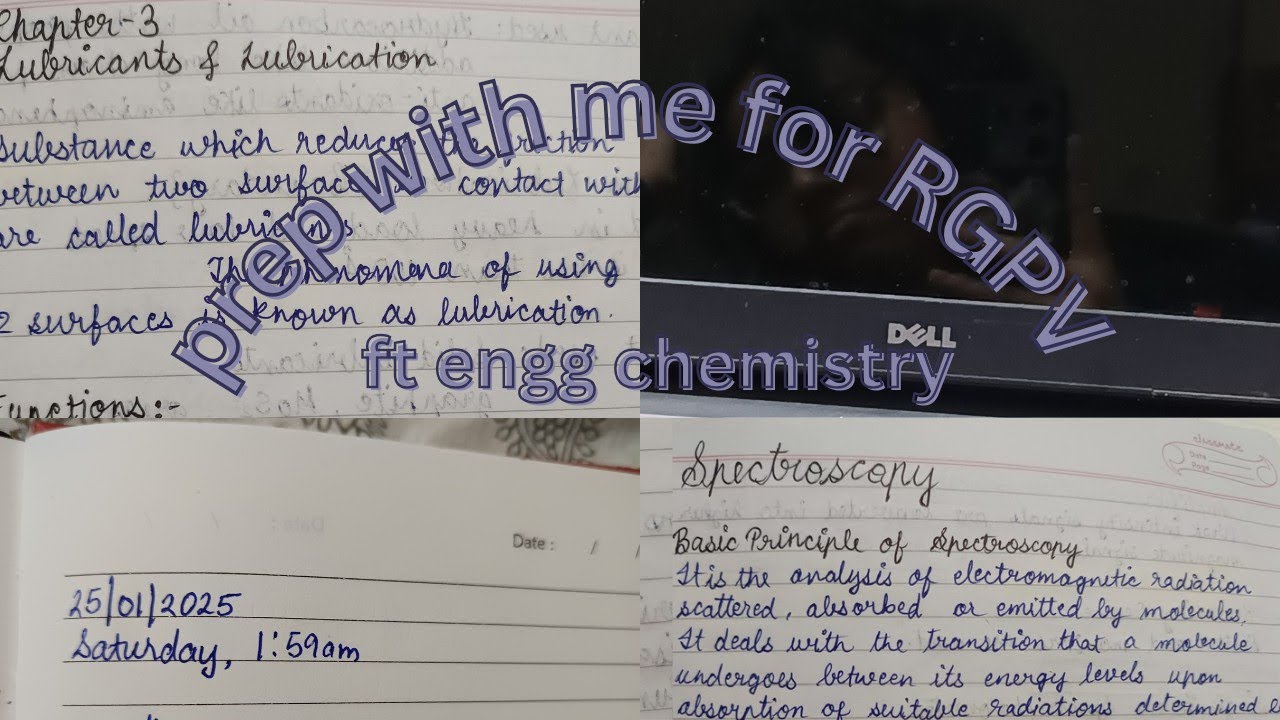 Chapter-3
Lubricants & Lubrication
substance which reduces the friction
between two surfaces in contact with
are called lubricants
The phenomena of using
2 surfaces is known as lubrication.
Functions:-
prep with me for RGPV
ft engg chemistry
DELL
Date : / /
25/01/2025
Saturday, 1:59am
classmate
Date
Page
Spectroscopy
Basic Principle of Spectroscopy
It is the analysis of electromagnetic radiation
scattered, absorbed or emitted by molecules.
It deals with the transition that a molecule
undergoes between its energy levels upon
absorption of suitable radiations determined